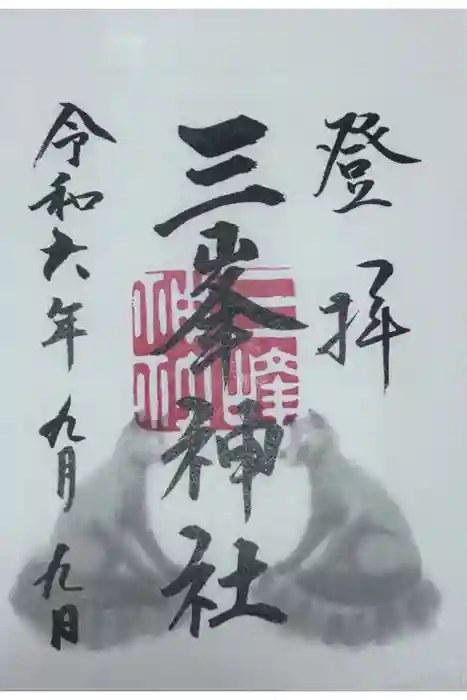 登拝
三峯神社
令和六年 九月 九日